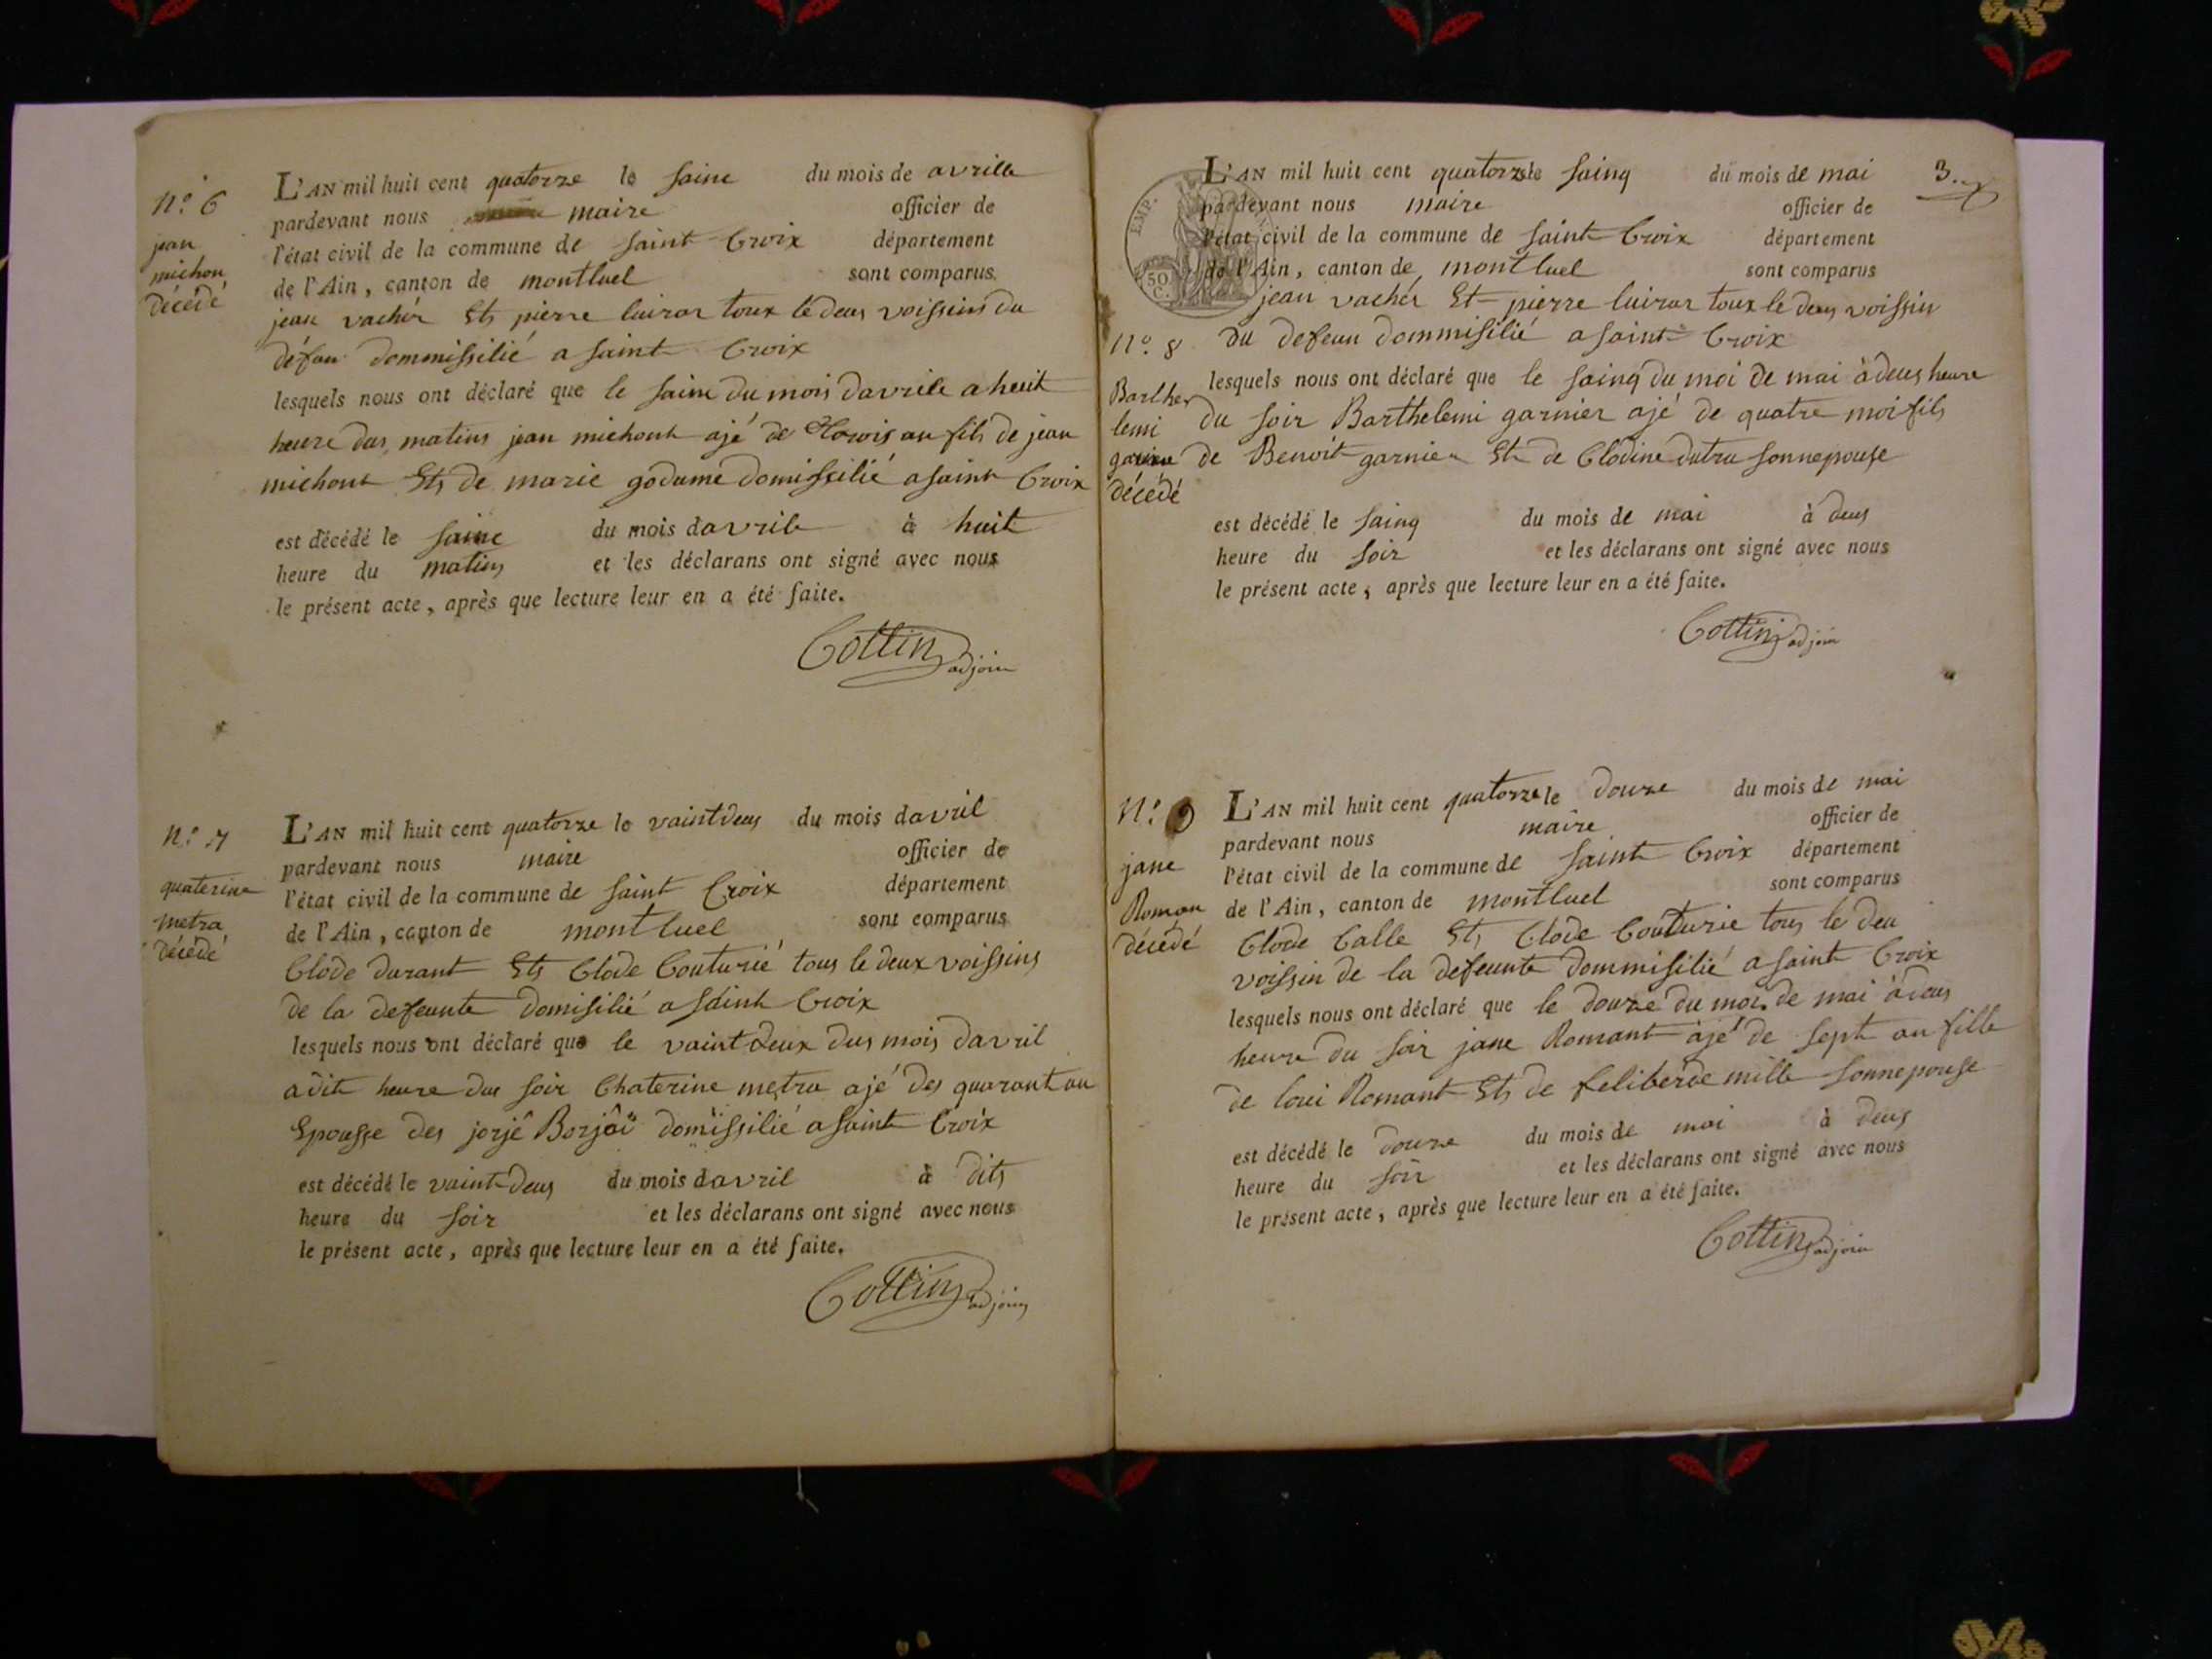 N.o 6
jean
michon
décédé
L'AN mil huit cent quatorze le sainc du mois de avrille
pardevant nous maire officier de
l'état civil de la commune de saint Croix département
de l'Ain, canton de montluel sont comparus
jean vachér Et pierre luiror toux le deus voissins du
défun dommissilié a saint Croix
lesquels nous ont déclaré que le sainc du mois davrile a heuit
heure dus matins jean michont ajé de trois an fils de jean
michont Et de marie godame domissilié a saint Croix
est décédé le sainc du mois davrile à huit
heure du matins et les déclarans ont signé avec nous
le présent acte, après que lecture leur en a été faite.
Cottin adjoin
N.o 7
quaterine
metra
décédé
L'AN mil huit cent quatorze le vaintdeus du mois davril
pardevant nous maire officier de
l'état civil de la commune de saint Croix département
de l'Ain, canton de montluel sont comparus
Clode durant Et Clode Couturié tous le deux voissins
de la defeunte domisilié a saint Croix
lesquels nous ont déclaré que le vaint deux dus mois davril
a dit heure du soir Chaterine metra ajé des quarant an
Epousse des jorjé Borjâï domissilié a saint Croix
est décédé le vaint deus du mois davril à dits
heure du soir et les déclarans ont signé avec nous
le présent acte, après que lecture leur en a été faite.
Cottin adjoin
3.
EMP.
50 C.
L'AN mil huit cent quatorze le sainq du mois de mai
pardevant nous maire officier de
l'état civil de la commune de saint Croix département
de l'Ain, canton de montluel sont comparus
jean vachér Et pierre luiror toux le deus voissin
du defeun dommisilié a saint Croix
N.o 8
Barthe
lemi
garnie
décédé
lesquels nous ont déclaré que le sainq du moi de mai à deus heure
du soir Barthelemi garnier ajé de quatre moi fils
de Benoit garnier Et de Clodine dutru sonnepouse
est décédé le sainq du mois de mai à deus
heure du soir et les déclarans ont signé avec nous
le présent acte, après que lecture leur en a été faite.
Cottin adjoin
N.o 9
jane
Roman
décédé
L'AN mil huit cent quatorze le douze du mois de mai
pardevant nous maire officier de
l'état civil de la commune de saint Croix département
de l'Ain, canton de montluel sont comparus
Clode Calle Et Clode Couturie tous le deu
voissin de la defeunte dommisilié a saint Croix
lesquels nous ont déclaré que le douze du moi de mai à deus
heure du soir jane Romant ajé de sept an fille
de loui Romant Et de feliberde mille sonnepouse
est décédé le douze du mois de mai à deus
heure du soir et les déclarans ont signé avec nous
le présent acte, après que lecture leur en a été faite.
Cottin adjoin